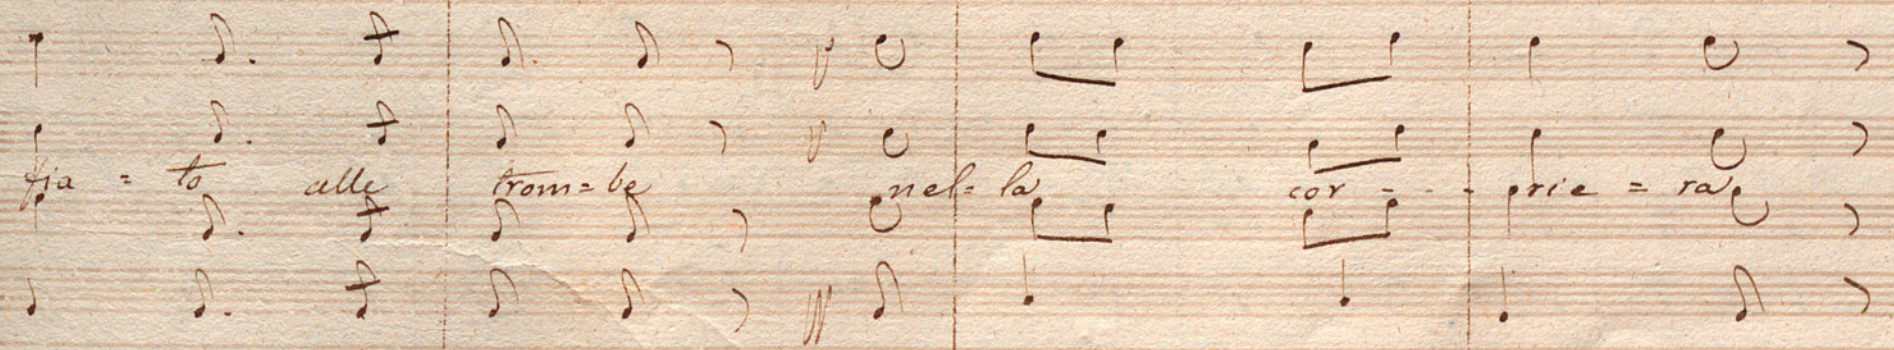 fia = to alle trom = be nel = la cor - - - prie = ra